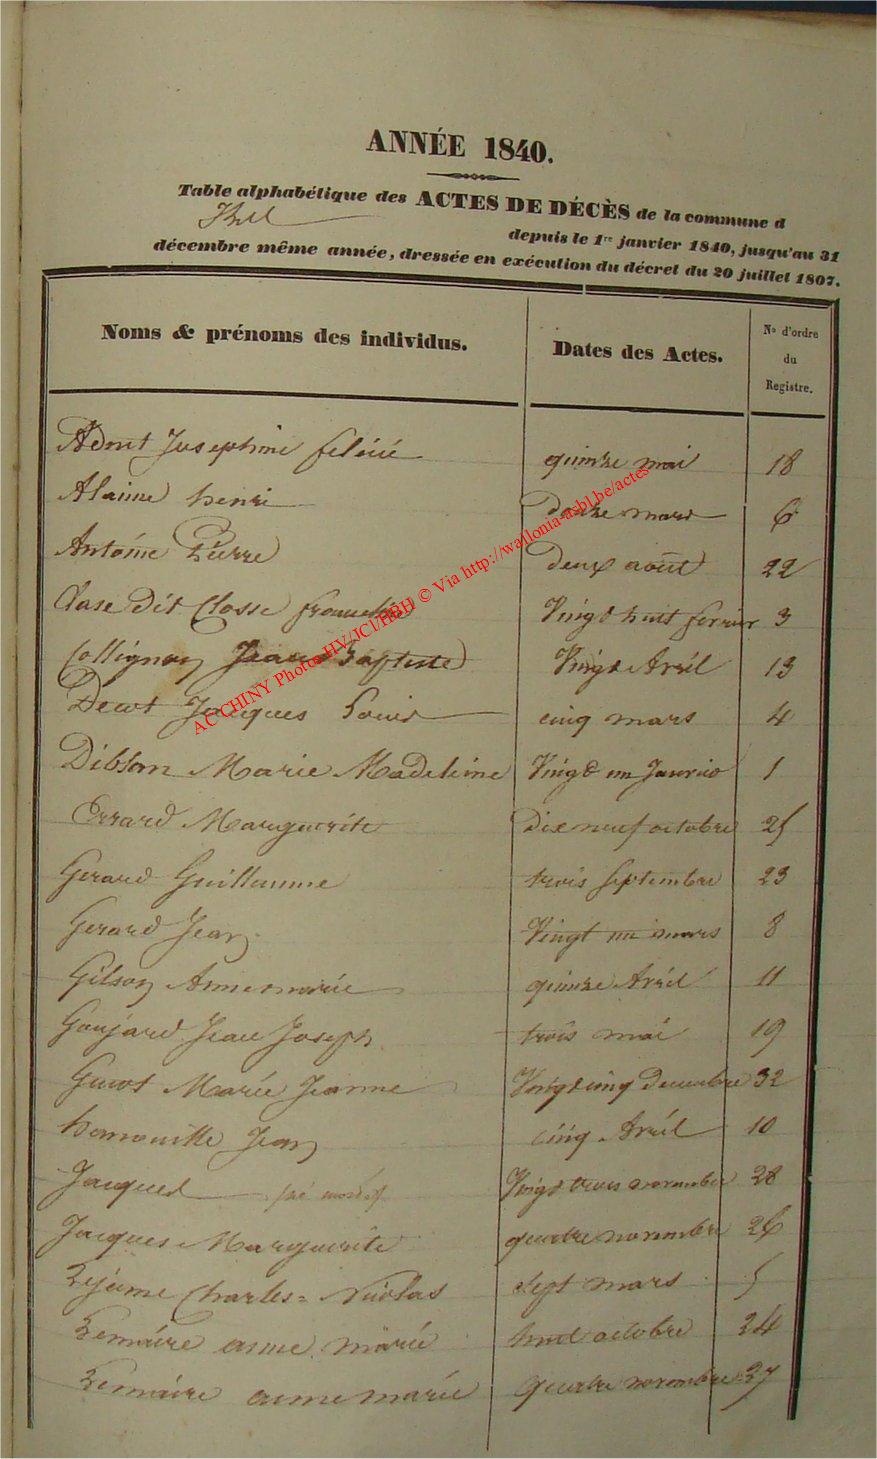 ANNÉE 1840.
Table alphabétique des ACTES DE DÉCÈS de la commune d
depuis le 1re janvier 1840, jusqu'au 31
décembre même année, dressée en exécution du décret du 20 juillet 1807.
Noms & prénoms des individus. Dates des Actes. No d'ordre
du
Registre.
Adnet Josephine felicié quinze mai 18
Alaime henri Douze mars 6
Antoine Pierre Deux août 22
Clase dit Closse Vingt huit ferrier 3
Collignon Jean Baptiste Vingt Avril 13
Decot Jacques Louis cinq mars 4
Dibsam Marie Madeleine Vingt un Janvier 1
Errard Marguerite dix neuf octobre 25
Gerard Guillaume trois septembre 23
Gerard Jean Vingt un mars 8
Gilson Anne marie quinze Avril 11
Goujard Jean Joseph trois mai 19
Guiot Marie Jeanne Vingt cinq Decembre 32
hanouille Jean cinq Avril 10
Jacques Vingt trois novembre 28
Jacques Marguerite quatre novembre 26
Lejeune Charles = Nicolas sept mars 5
Lemaire anne marie huit octobre 24
Lemaire anne marie quatre novembre 27
AC CHINY Photos HV/JCI/HBH © Via http://wallonia-asbl.be/actes